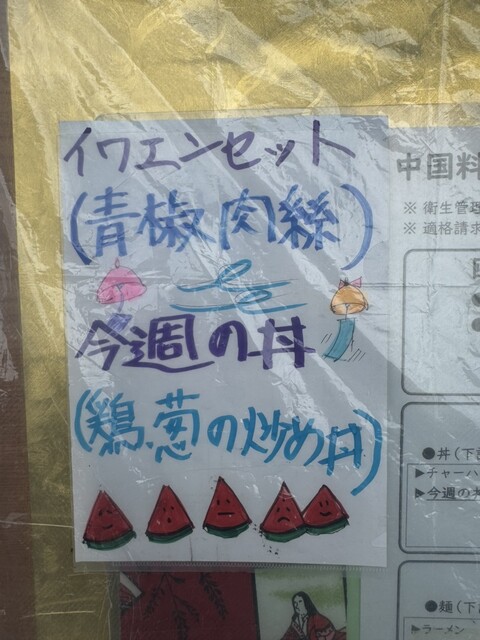 イワエンセット
(青椒肉絲)
今週の丼
(鶏、葱の炒め丼)
中国料
※ 衛生管理
※ 適格請求
●丼(下
▶チャーハ
▶今週の丼
●麺(下
▶ラーメン